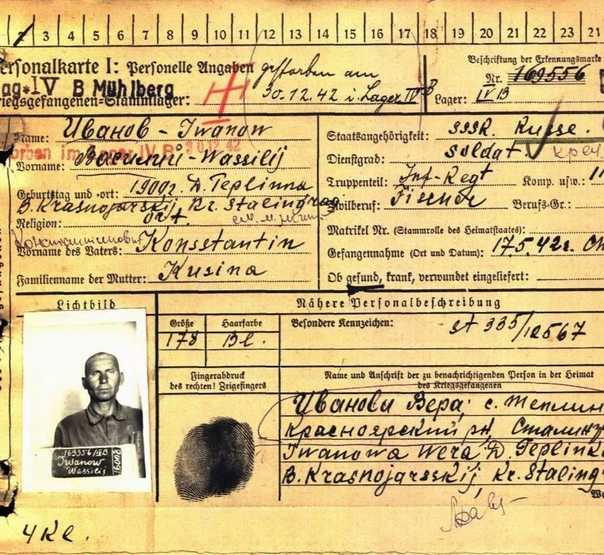 1 2 3 4 5 6 7 8 9 10 11 12 13 14 15 16 17 18 19 20 21 22 23 24
Personalkarte I: Personelle Angaben
gestorben am 30.12.42 i. Lager IV B
Stalag IV B Mühlberg
Kriegsgefangenen-Stammlager:
Beschriftung der Erkennungsmarke
Nr. 169556
Lager: IV B
Name: Иванов - Iwanow
gestorben im Lager IV B 30.12.42
Vorname: Василий - Wassilij
Geburtstag und -ort: 1900г. D. Teplinna
B. Krasnojarskij, Kr. Stalingrad
Religion: Ort.
Vorname des Vaters: Konsstantin
Familienname der Mutter: Kusina
Staatsangehörigkeit: SSSR. Russe.
Dienstgrad: Soldat
Truppenteil: Inf-Regt Komp. usw.: 11
Zivilberuf: Fischer Berufs-Gr.:
Matrikel Nr. (Stammrolle des Heimatstaates):
Gefangennahme (Ort und Datum): 17.5.42г. Ch
Ob gesund, krank, verwundet eingeliefert:
Lichtbild
Nähere Personalbeschreibung
Größe Haarfarbe Besondere Kennzeichen:
178 Bl. 335/12567
Fingerabdruck
des rechten! Zeigefingers
Name und Anschrift der zu benachrichtigenden Person in der Heimat
des Kriegsgefangenen
Иванова Вера; с. Теплин
Красноярский рн Сталинг
Iwanowa Wera D. Teplinka
B. Krasnojarsskij Kr. Staling
169556/IVB
Iwanow
Wassilij
4 Kl.